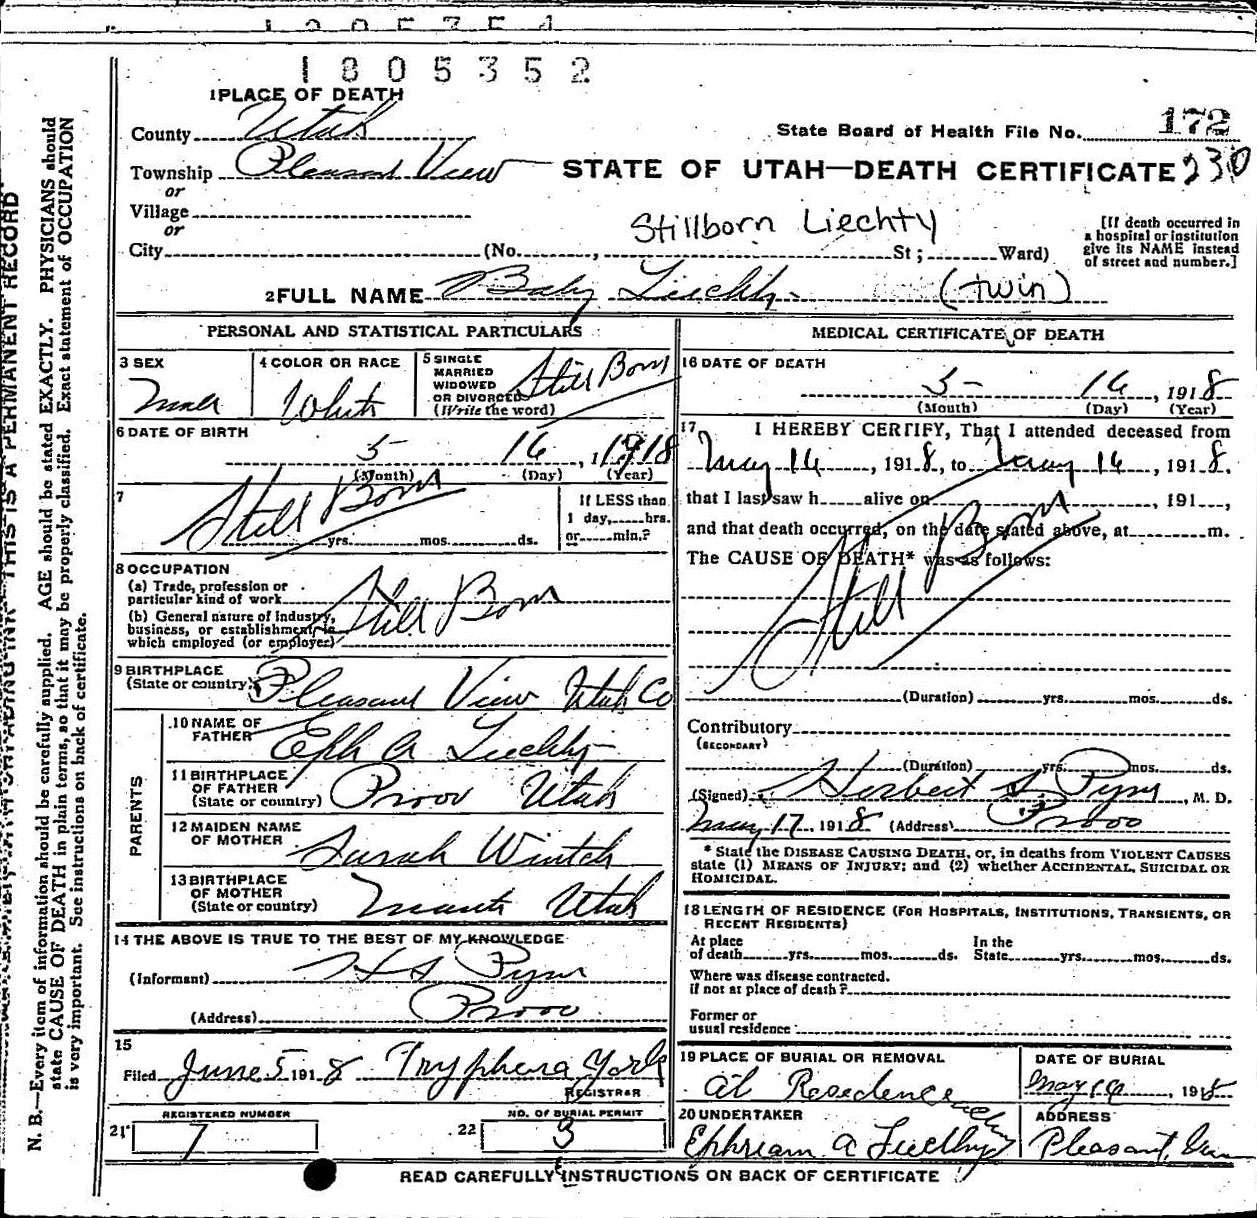 1805352
1 PLACE OF DEATH
County Utah
State Board of Health File No. 172
Township Pleasant View
STATE OF UTAH—DEATH CERTIFICATE 230
or
Village
or
Stillborn Liechty
City (No. , St ; Ward)
[If death occurred in
a hospital or institution
give its NAME instead
of street and number.]
2 FULL NAME Baby Liechty (twin)
PERSONAL AND STATISTICAL PARTICULARS
3 SEX
Male
4 COLOR OR RACE
White
5 SINGLE
MARRIED
WIDOWED
OR DIVORCED
(Write the word)
Still Born
6 DATE OF BIRTH
5 16 , 1918
(Month) (Day) (Year)
7
Still Born
yrs. mos. ds.
If LESS than
1 day, hrs.
or min.?
8 OCCUPATION
(a) Trade, profession or
particular kind of work
(b) General nature of industry,
business, or establishment in
which employed (or employer)
Still Born
9 BIRTHPLACE
(State or country) Pleasant View Utah Co
PARENTS
10 NAME OF
FATHER Eph A Liechty
11 BIRTHPLACE
OF FATHER
(State or country) Provo Utah
12 MAIDEN NAME
OF MOTHER Sarah Wintch
13 BIRTHPLACE
OF MOTHER
(State or country) Manti Utah
14 THE ABOVE IS TRUE TO THE BEST OF MY KNOWLEDGE
(Informant) H S Pyne
(Address) Provo
15
Filed June 5 1918 Tryphena York
REGISTRAR
REGISTERED NUMBER
21 7
NO. OF BURIAL PERMIT
22 3
MEDICAL CERTIFICATE OF DEATH
16 DATE OF DEATH
5 16 , 1918
(Month) (Day) (Year)
17 I HEREBY CERTIFY, That I attended deceased from
May 16 , 1918, to May 16 , 1918.
that I last saw h alive on , 191 ,
and that death occurred, on the date stated above, at m.
The CAUSE OF DEATH* was as follows:
Still Born
(Duration) yrs. mos. ds.
Contributory
(SECONDARY)
(Duration) yrs. mos. ds.
(Signed) Herbert S. Pyne , M. D.
May 17 1918 (Address) Provo
* State the DISEASE CAUSING DEATH, or, in deaths from VIOLENT CAUSES
state (1) MEANS OF INJURY; and (2) whether ACCIDENTAL, SUICIDAL OR
HOMICIDAL.
18 LENGTH OF RESIDENCE (FOR HOSPITALS, INSTITUTIONS, TRANSIENTS, OR
RECENT RESIDENTS)
At place
of death yrs. mos. ds.
In the
State yrs. mos. ds.
Where was disease contracted.
if not at place of death ?
Former or
usual residence
19 PLACE OF BURIAL OR REMOVAL
At Resedence
DATE OF BURIAL
May 16 , 1918
20 UNDERTAKER
Ephriam A Liechty
ADDRESS
Pleasant View
READ CAREFULLY INSTRUCTIONS ON BACK OF CERTIFICATE
THIS IS A PERMANENT RECORD.
N. B.—Every item of information should be carefully supplied. AGE should be stated EXACTLY. PHYSICIANS should
state CAUSE OF DEATH in plain terms, so that it may be properly classified. Exact statement of OCCUPATION
is very important. See instructions on back of certificate.